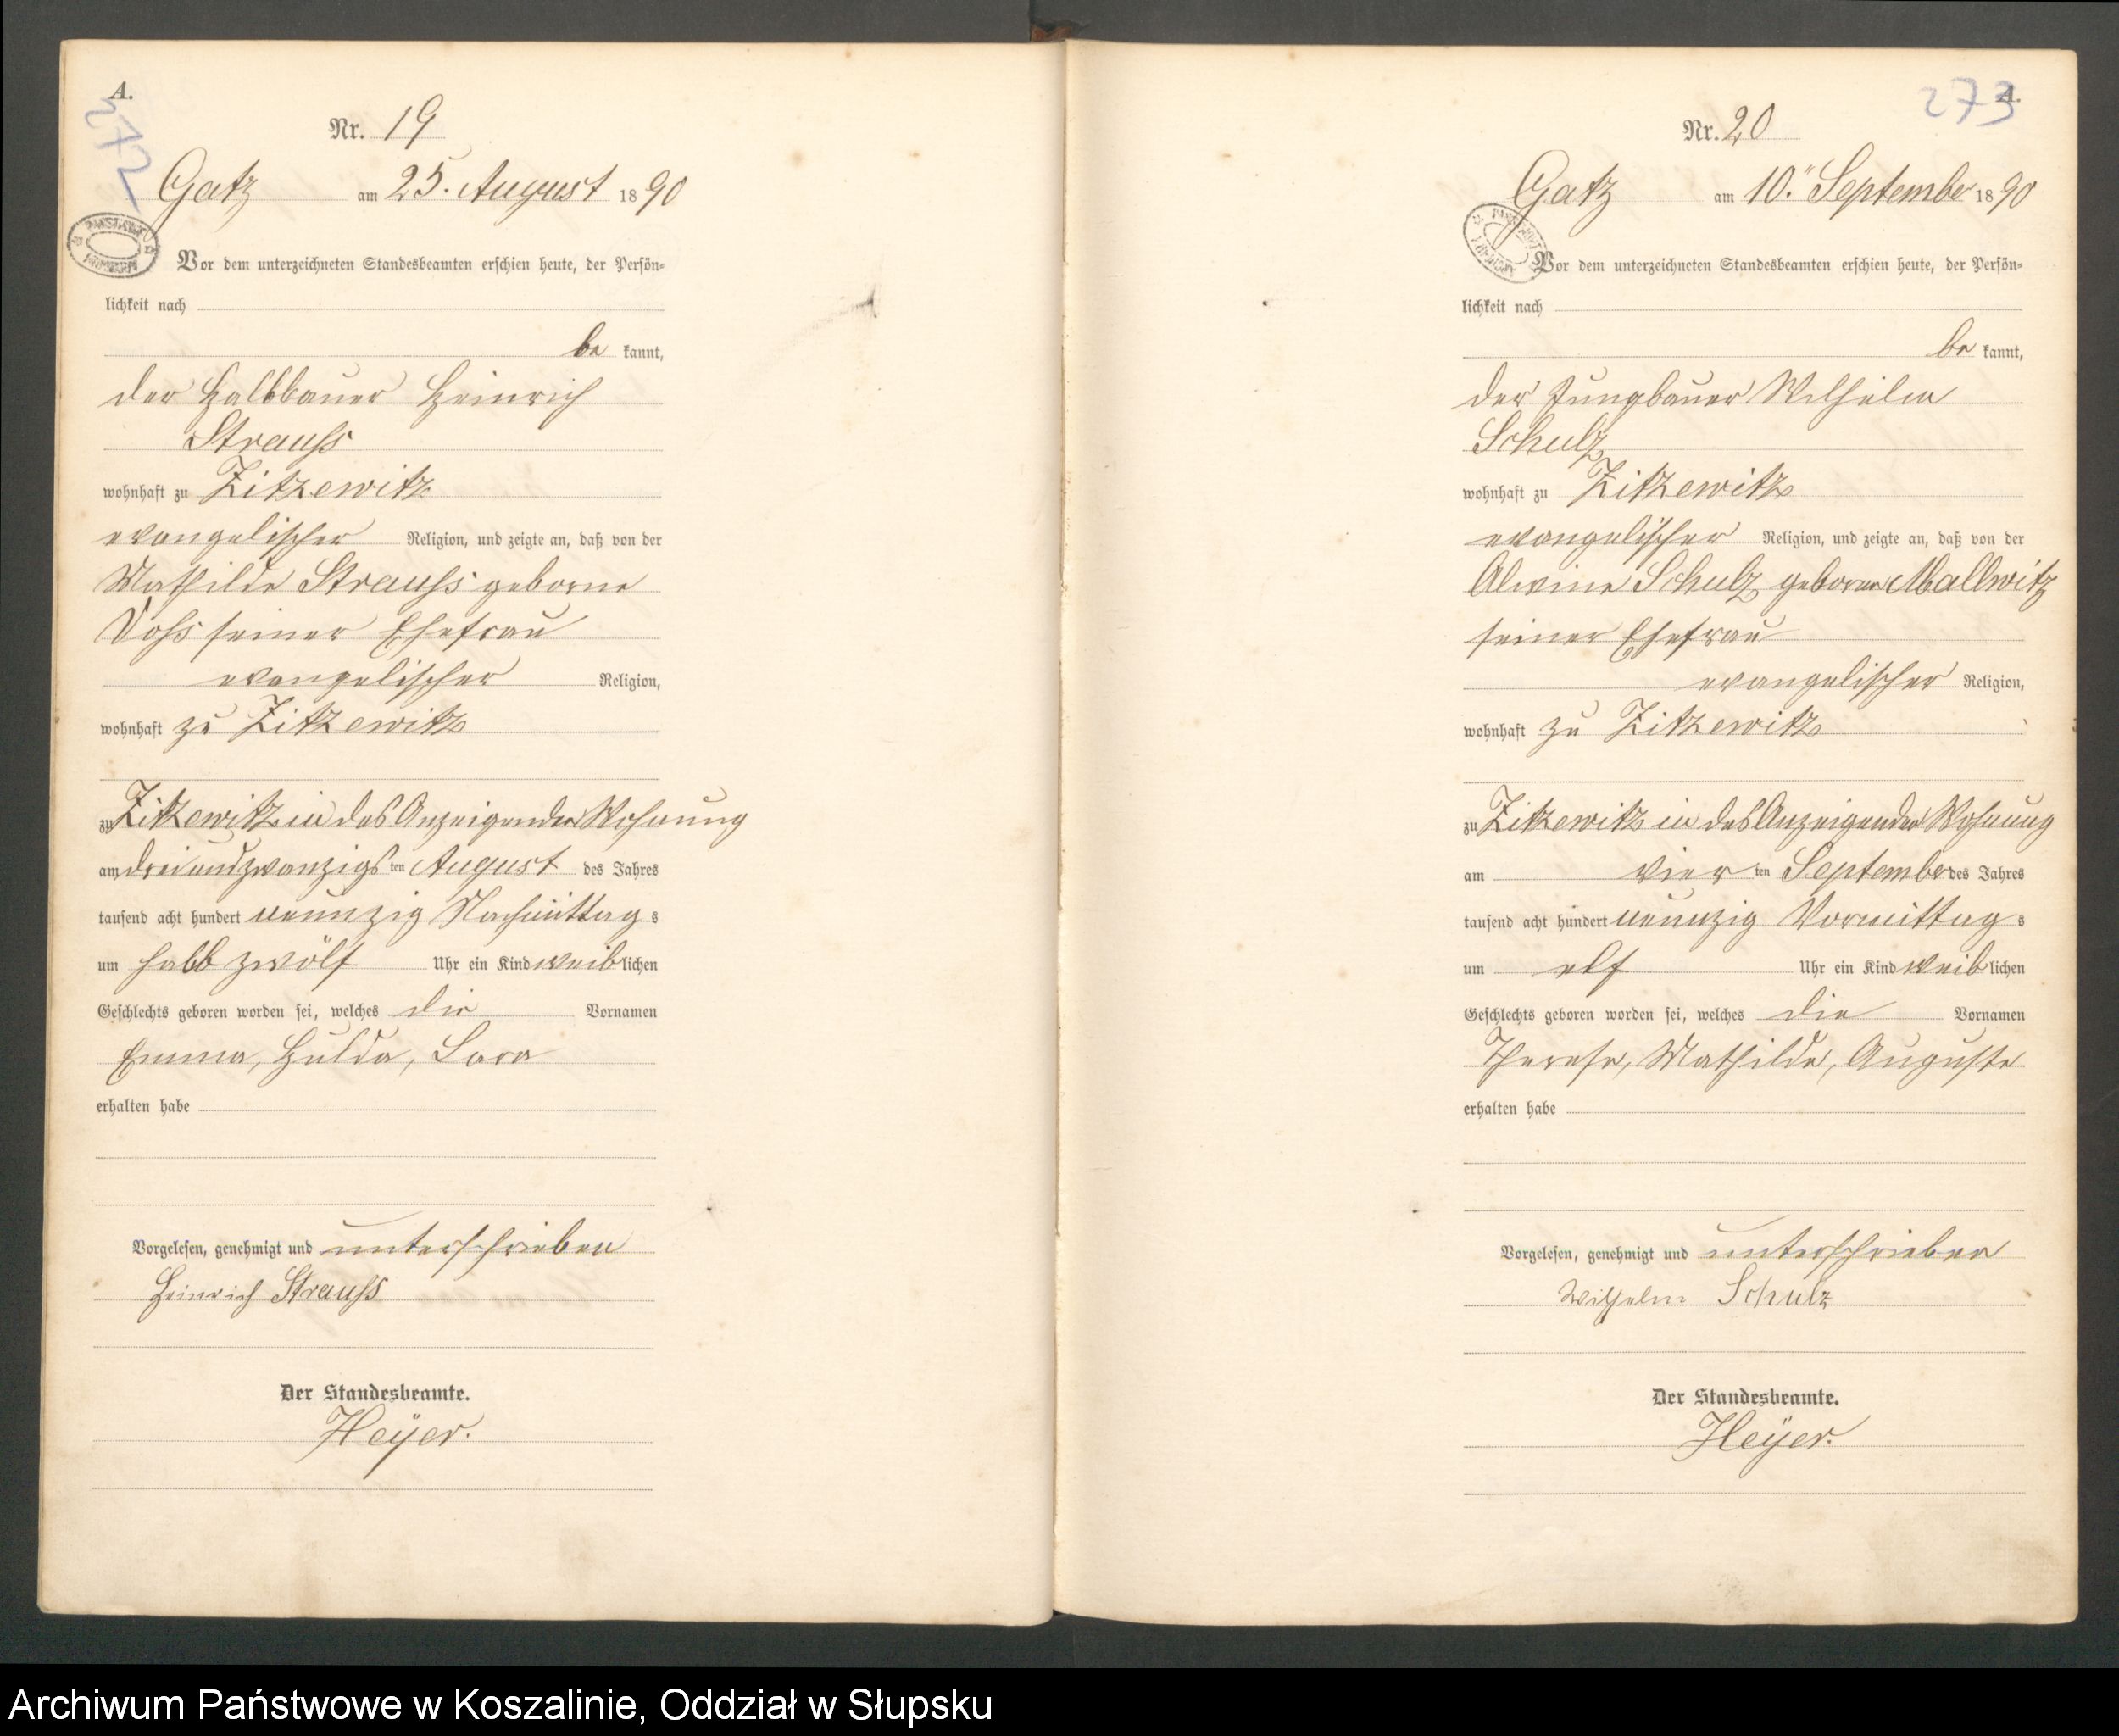 A.
272
Nr. 19
Gatz am 25. August 1890
Vor dem unterzeichneten Standesbeamten erschien heute, der Persön-
lichkeit nach
be kannt,
der Halbbauer Heinrich
Strauss
wohnhaft zu Zitzewitz
evangelischer Religion, und zeigte an, daß von der
Mathilde Strauss geborne
Voss seiner Ehefrau
evangelischer Religion,
wohnhaft zu Zitzewitz
zu Zitzewitz in des Anzeigenden Wohnung
am dreiundzwanzigsten August des Jahres
tausend acht hundert neunzig Nachmittags
um halb zwölf Uhr ein Kind weiblichen
Geschlechts geboren worden sei, welches die Vornamen
Emma, Hulda, Lara
erhalten habe
Vorgelesen, genehmigt und unterschrieben
Heinrich Strauss
Der Standesbeamte.
Heÿer.
273
A.
Nr. 20
Gatz am 10. September 1890
Vor dem unterzeichneten Standesbeamten erschien heute, der Persön-
lichkeit nach
be kannt,
der Jungbauer Wilhelm
Schulz
wohnhaft zu Zitzewitz
evangelischer Religion, und zeigte an, daß von der
Alwine Schulz geborne Mallwitz
seiner Ehefrau
evangelischer Religion,
wohnhaft zu Zitzewitz
zu Zitzewitz in des Anzeigenden Wohnung
am vierten September des Jahres
tausend acht hundert neunzig Vormittags
um elf Uhr ein Kind weiblichen
Geschlechts geboren worden sei, welches die Vornamen
Therese, Mathilde, Auguste
erhalten habe
Vorgelesen, genehmigt und unterschrieben
Wilhelm Schulz
Der Standesbeamte.
Heÿer.
Archiwum Państwowe w Koszalinie, Oddział w Słupsku